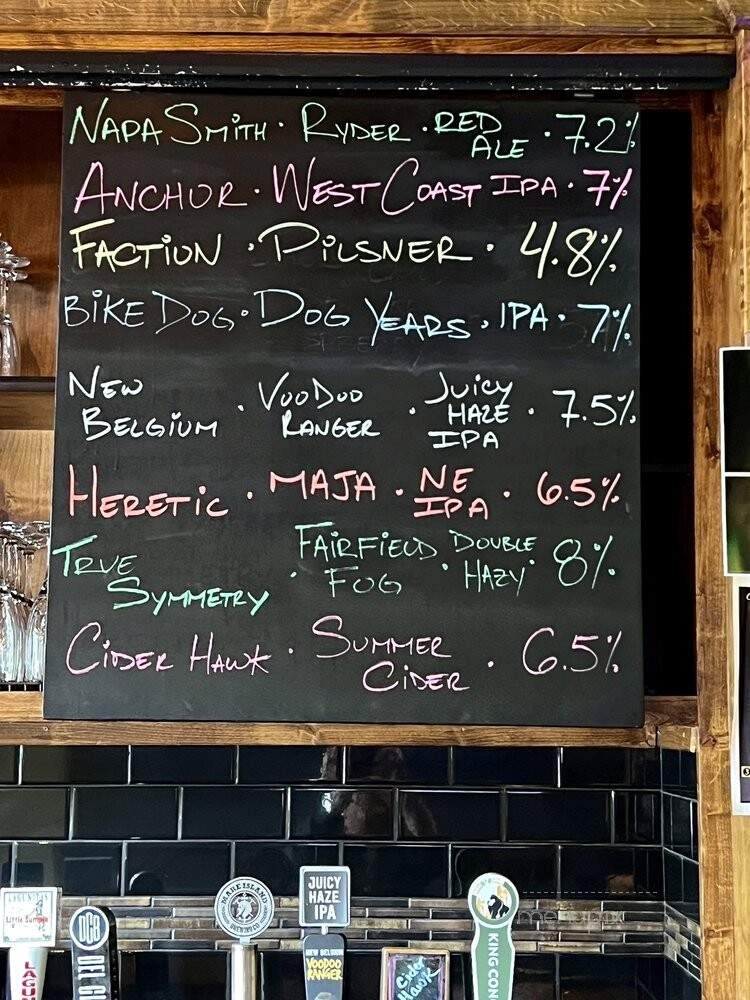 NAPA SMITH · RYDER · RED ALE · 7.2%
ANCHOR · WEST COAST IPA · 7%
FACTION · PILSNER · 4.8%
BIKE DOG · DOG YEARS · IPA · 7%
NEW BELGIUM · VOODOO RANGER · JUICY HAZE IPA · 7.5%
HERETIC · MAJA · NE IPA · 6.5%
TRUE SYMMETRY · FAIRFIELD FOG · DOUBLE HAZY · 8%
CIDER HAWK · SUMMER CIDER · 6.5%
LAGUNITAS
Little Sumpin
LAGUN
DCB
DEL C
MARE ISLAND
BREWING CO
JUICY
HAZE
IPA
NEW BELGIUM
VOODOO
RANGER
Cider
Hawk
KING CON